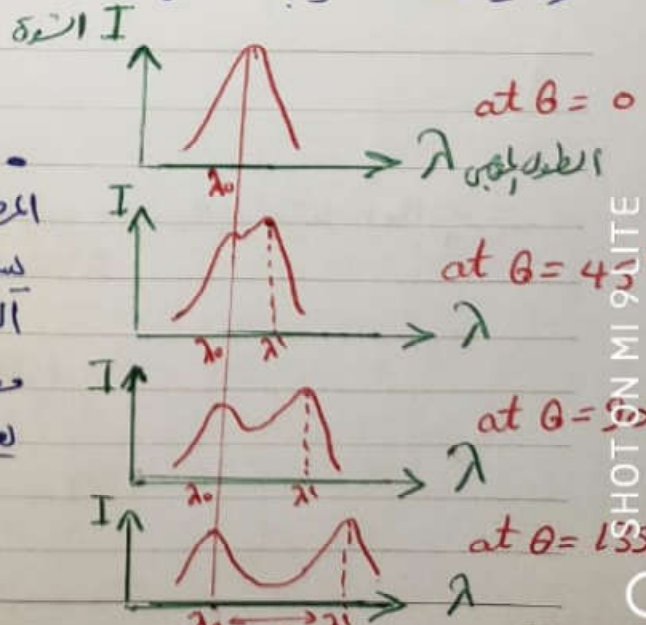 I الشدة
at θ = 0
λ الطول الموجي
λ₀
I
at θ = 45
λ
λ₀ λ'
I
at θ = 90
λ
λ₀ λ'
I
at θ = 135
λ
λ₀ λ'
SHOT ON MI 9 LITE